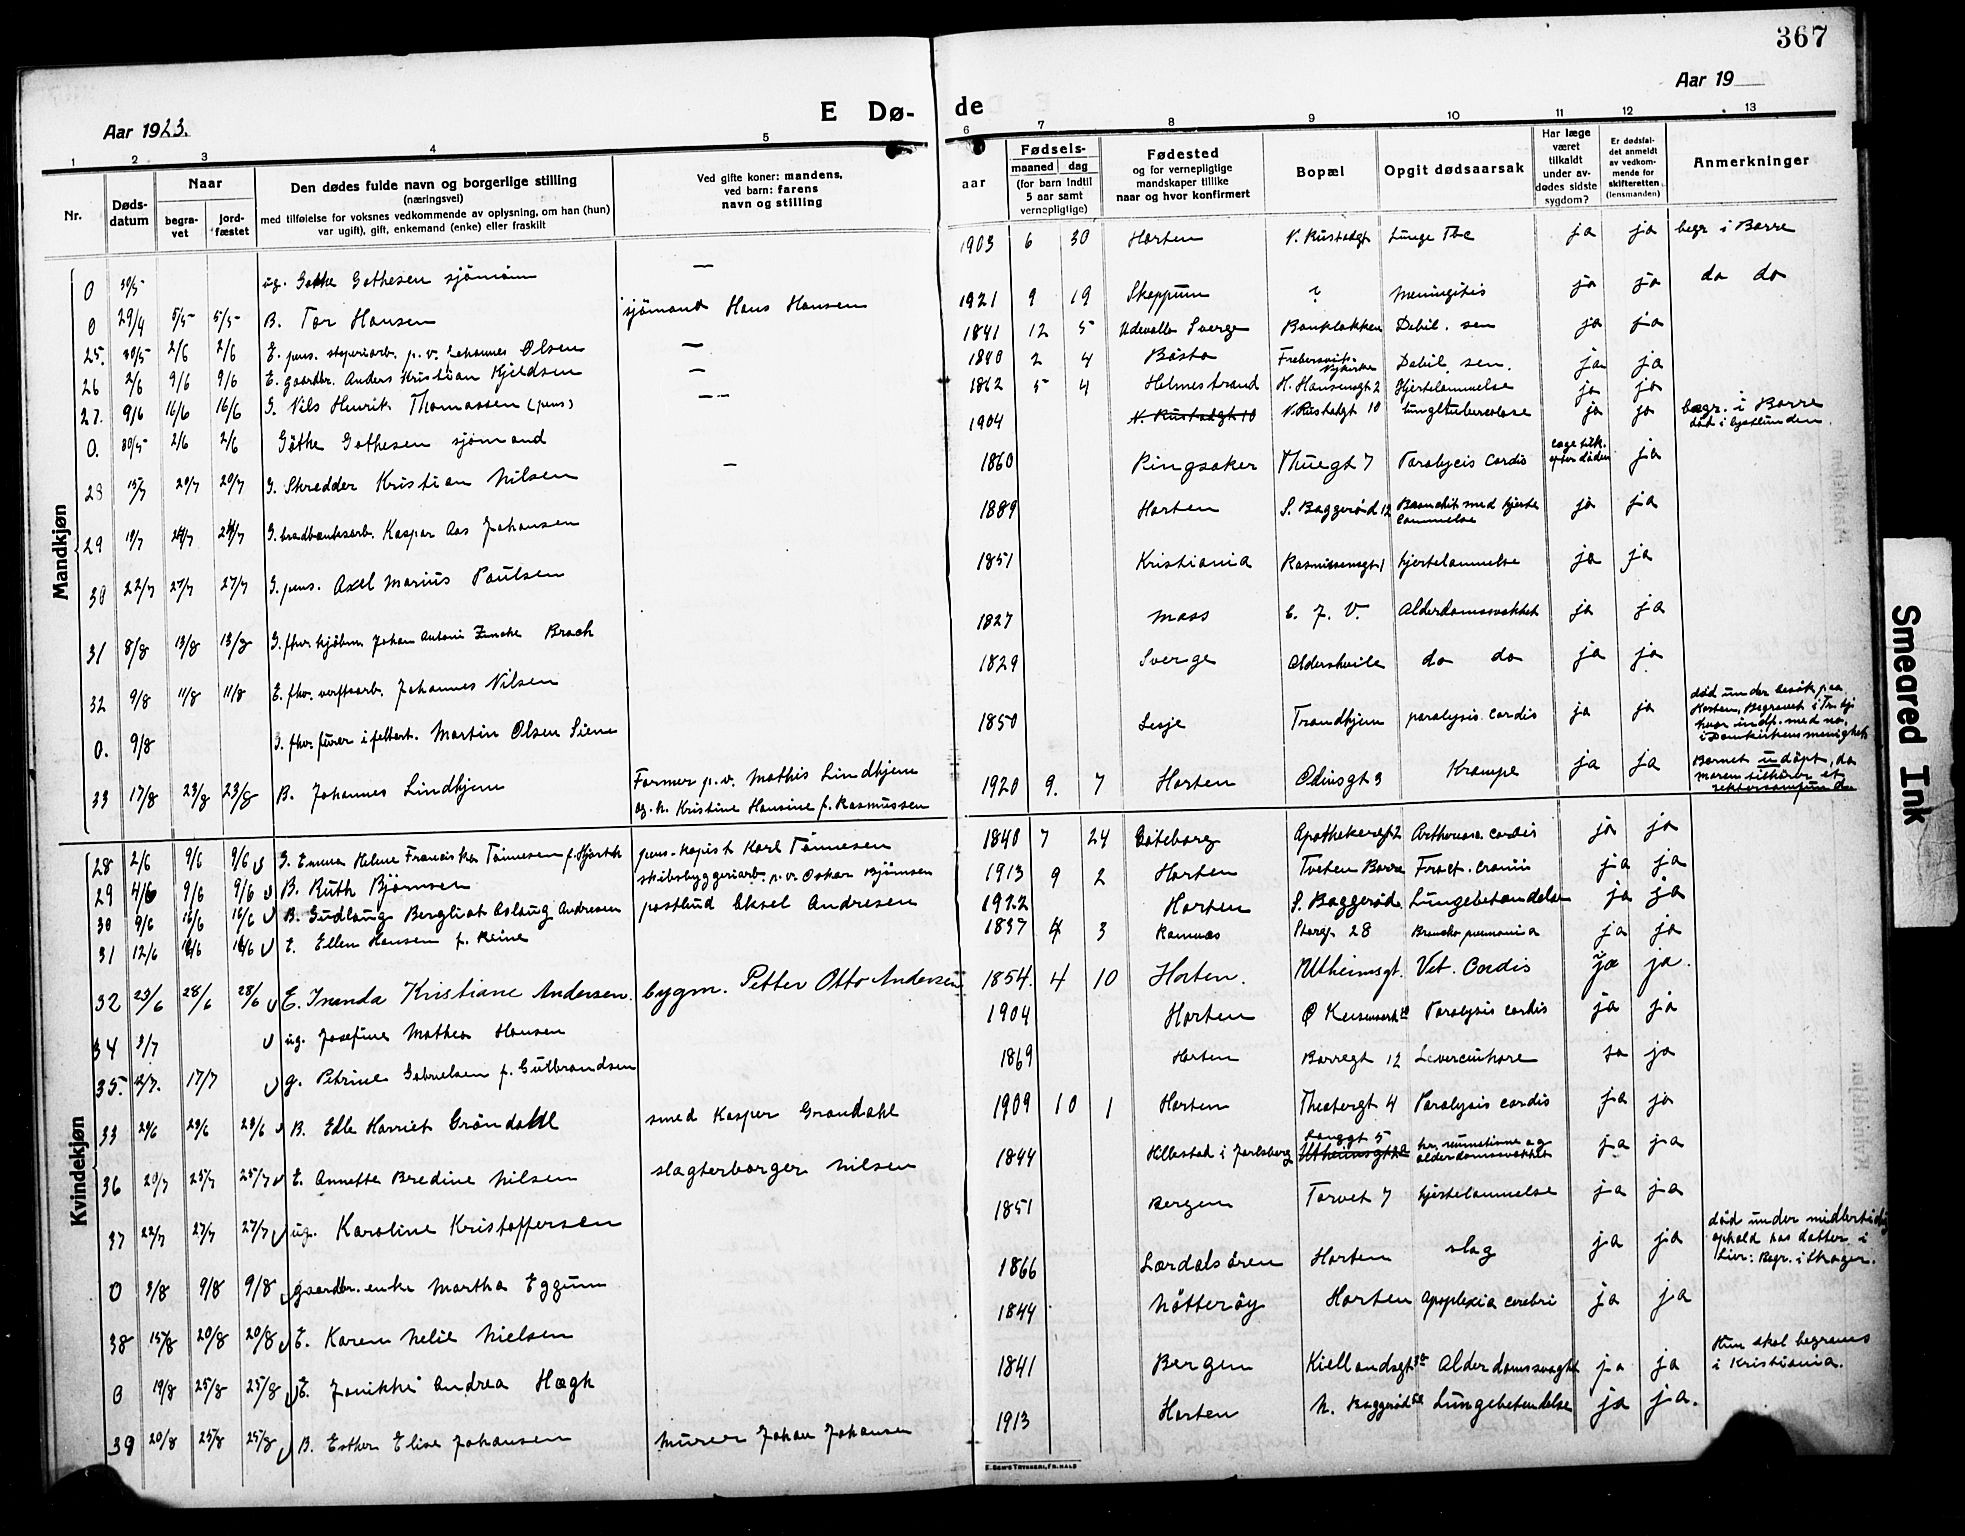 367
Aar 1923.
E Dø-
de
Aar 19
1 2 3 4 5 6 7 8 9 10 11 12 13
Nr.
Døds-
datum
Naar
begra-
vet
jord-
fæstet
Den dødes fulde navn og borgerlige stilling
(næringsvei)
med tilføielse for voksnes vedkommende av oplysning, om han (hun)
var ugift), gift, enkemand (enke) eller fraskilt
Ved gifte koner: mandens,
ved barn: farens
navn og stilling
aar
Fødsels-
maaned dag
(for barn indtil
5 aar samt
vernepligtige)
Fødested
og for vernepligtige
mandskaper tillike
naar og hvor konfirmert
Bopæl
Opgit dødsaarsak
Har læge
været
tilkaldt
under av-
dødes sidste
sygdom?
Er dødsfal-
det anmeldt
av vedkom-
mende for
skifteretten
(lensmanden)
Anmerkninger
Mandkjøn
0 30/5 ug. Gøthe Gothesen sjömann — 1903 6 30 Horten N. Rustadgt Lunge Tbc ja ja begr i Borre
0 29/4 5/5 5/5 B. Tor Hansen sjömand Hans Hansen 1921 9 19 Skoppum ? Meningitis ja ja do do
25. 30/5 2/6 2/6 E. pens. støperiarb. p. v. Johannes Olsen — 1841 12 5 Udevalla Sverge Bankløkken Debil. sen ja ja
26 2/6 9/6 9/6 E. gaardbr. Anders Kristian Kjeldsen — 1840 2 4 Båstø Debil. sen. ja ja
27. 9/6 16/6 16/6 G. Nils Henrik Thomassen (pens) — 1862 5 4 Holmestrand H. Hansensgt 2 Hjertelammelse ja ja
0. 30/5 2/6 2/6 Göthe Gothesen sjömand 1904 N. Rustadgt 10 N. Rustadgt 10 Lungetuberculose ja ja begr. i Borre
28 15/7 20/7 20/7 G. Skredder Kristian Nilsen — 1860 Ringsaker Thuegt 7 Paralysis Cordis læge tilk.
efter döden ja
29 19/7 24/7 24/7 G. Kasper Aas Johansen 1889 Horten S. Baggerød 12 Bronchit med hjerte
lammelse ja ja
30 22/7 27/7 27/7 G. pens. Axel Marius Paulsen 1851 Kristiania Rasmussensgt 1 hjertelammelse ja ja
31 8/8 13/8 13/8 G. fhv. kjöbm. Johan Antoni Zincke Broch 1827 Moss C. J. V. Alderdomssvakhet ja ja
32 9/8 11/8 11/8 E. fhv. verftsarb. Johannes Nilsen 1829 Sverge Aldershvile do do ja ja
0. 9/8 G. fhv. furer i feltart. Martin Olsen Siem 1850 Lesje Trondhjem paralysis cordis ja ja död under besök paa
Horten, Begravet i Tr. hj
hvor indf. med no.
i Domkirkens menighet
33 17/8 23/8 23/8 B. Johannes Lindhjem Former p. v. Mathis Lindhjem
og h. Kristine Hansine f. Rasmussen 1920 9. 7 Horten Odinsgt 3 Krampe ja ja Barnet udöpt, da
moren tilhörer et
Kvindekjøn
28 2/6 9/6 9/6 G. Emma Helene Franciska Tönnesen f. Hjorth pens. kopist Karl Tönnesen 1840 7 24 Göteborg Apothekergt 2 cordis ja ja
29 4/6 9/6 9/6 B. Ruth Björnsen skibsbyggeriarb. p. v. Oskar Björnsen 1913 9 2 Horten Tveten Borre Fract. cranii ja ja
30 9/6 16/6 16/6 B. Gudlaug Bergliot Aslaug Andresen postbud Aksel Andresen 1922 Horten S. Baggeröd Lungebetændelse ja ja
31 12/6 16/6 16/6 E. Ellen Hansen f. Reine 1837 4 3 Ramnæs Storg. 28 Broncho pneumonia ja ja
32 23/6 28/6 28/6 E. Inanda Kristiane Andersen. bygm. Petter Otto Andersen 1854. 4 10 Horten. Utheimsgt. Vit. Cordis ja ja.
34 3/7 ug. Josefine Mathea Hansen 1904 Horten Paralysis cordis ja ja
35. 12/7. 17/7 g. Petrine Gabrielsen f. Gulbrandsen 1869 Horten Borregt 12 Levercirrhose ja ja
33 24/6 29/6 29/6 B. Edle Harriet Gröndahl smed Kasper Gröndahl 1909 10 1 Horten Theatergt 4 Paralysis cordis ja ja
36 20/7 25/7 25/7 E. Annette Bredine Nilsen slagterborger Nilsen 1844 Hillestad i Jarlsberg Langgt 5 alderdomssvakhet ja ja
37 22/7 27/7 27/7 ug. Karoline Kristoffersen 1851 Bergen Torvet 7 hjertelammelse ja ja
0 3/8 9/8 9/8 gaardbr. enke Martha Eggum 1866 Lærdalsören Horten slag ja ja död under midlertidig
ophold hos datter i
Lier: Begr. i Skoger.
38 15/8 20/8 20/8 E. Karen Nelie Nielsen 1844 Nötteröy Horten Apoplexia cerebri ja ja
0 19/8 25/8 25/8 E. Jonikke Andrea Hægh 1841 Bergen Kiellandsgt Alderdomssvaghet ja ja Hun skal begraves
i Kristiania.
39 20/8 25/8 25/8 B. Esther Elise Johansen Murer Johan Johansen 1913 Horten N. Baggeröd Lungebetændelse ja ja.
E. SEM'S TRYKKERI, FR.HALD
Smeared Ink